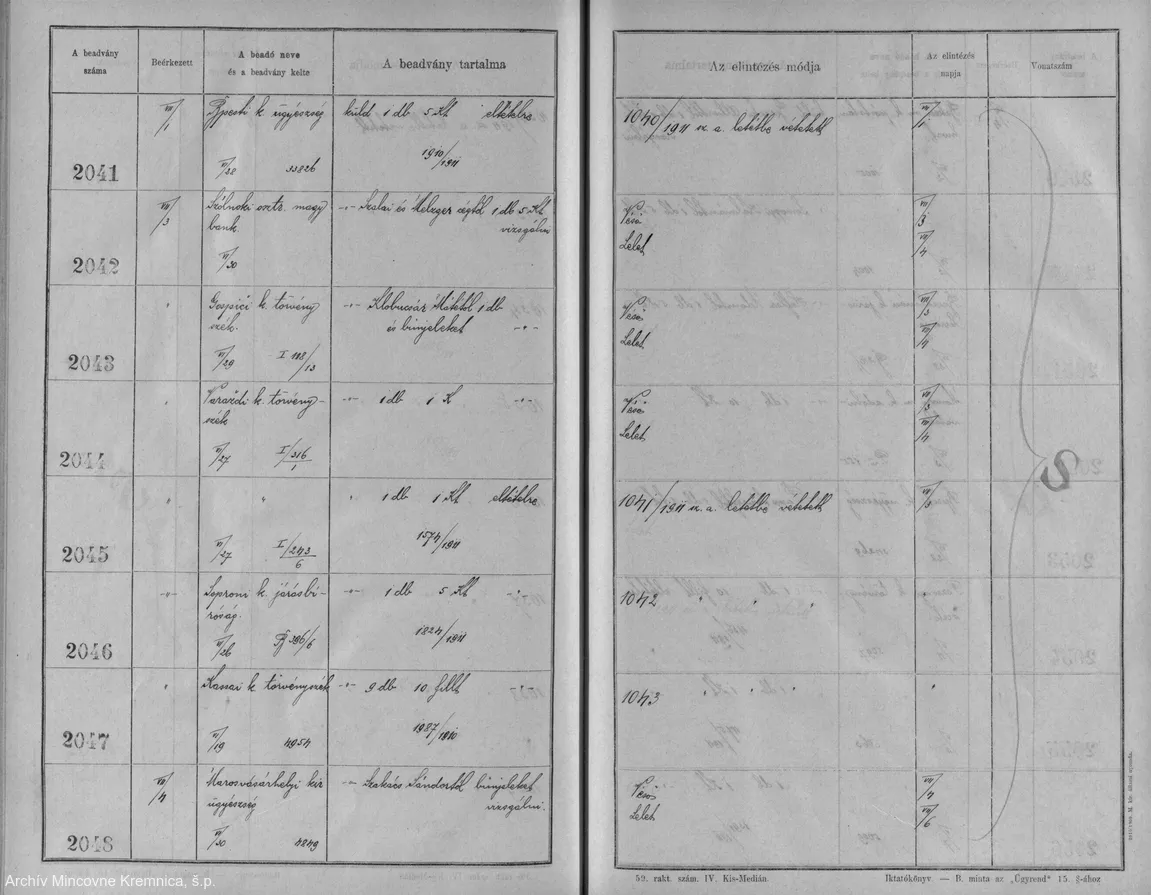 A beadvány száma
Beérkezett
A beadó neve és a beadvány kelte
A beadvány tartalma
Az elintézés módja
Az elintézés napja
Vonatszám
VII/1
Bpesti k. ügyészség
küld 1 db 5 Kt eltételre
1040/1911 sz. a. letétbe vétetett
VII/1
2041
VI/28 33826
1910/1911
VII/3
Szolnoki osztr. magy bank.
-"- Szalai és Melczer cégtől 1 db 5 Kt vizsgálni
Véső
VII/3
Lelet
VII/4
2042
VI/30
"
Gospici k. törvény
szék.
-"- Klobucsár Mátétól 1 db
és bünjeleket -"-
Véső
VII/3
Lelet
VII/4
2043
VI/29 I 118/13
"
Varazdi k. törvény-
szék
-"- 1 db 1 K -"-
Véső
VII/3
Lelet
VII/4
2044
VI/27 I/316/1
" " " 1 db 1 Kt eltételre
1041/1911 sz. a. letétbe vétetett
VII/3
2045
VI/27 I/243/6
1574/1911
-"-
Soproni k. járásbi-
róság.
-"- 1 db 5 Kt "
1042 " " "
"
2046
VI/26 396/6
1824/1911
"
Kassai k. törvényszék
-"- 9 db 10 fillt "
1043 " " " "
"
2047
VI/19 4954
1987/1910
VII/4
Marosvásárhelyi kir
ügyészség
-"- Szakács Sándortól bünjeleket
vizsgálni.
Véső
VII/4
Lelet
VII/6
2048
VI/30 4849
52. rakt. szám. IV. Kis-Medián.
Iktatókönyv. — B. minta az „Ügyrend" 15. §-ához
Archív Mincovne Kremnica, š.p.